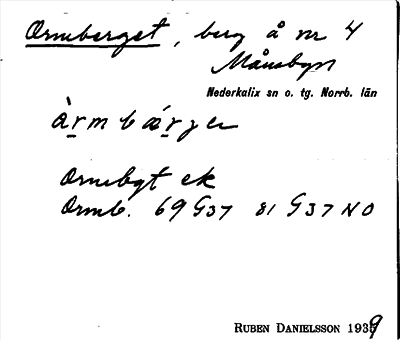 Ormberget, berg å nr 4
Månsbyn
Nederkalix sn o. tg. Norrb. län
Ormbgt ek
Ormb. 69 G37 81 G37 NO
RUBEN DANIELSSON 1939